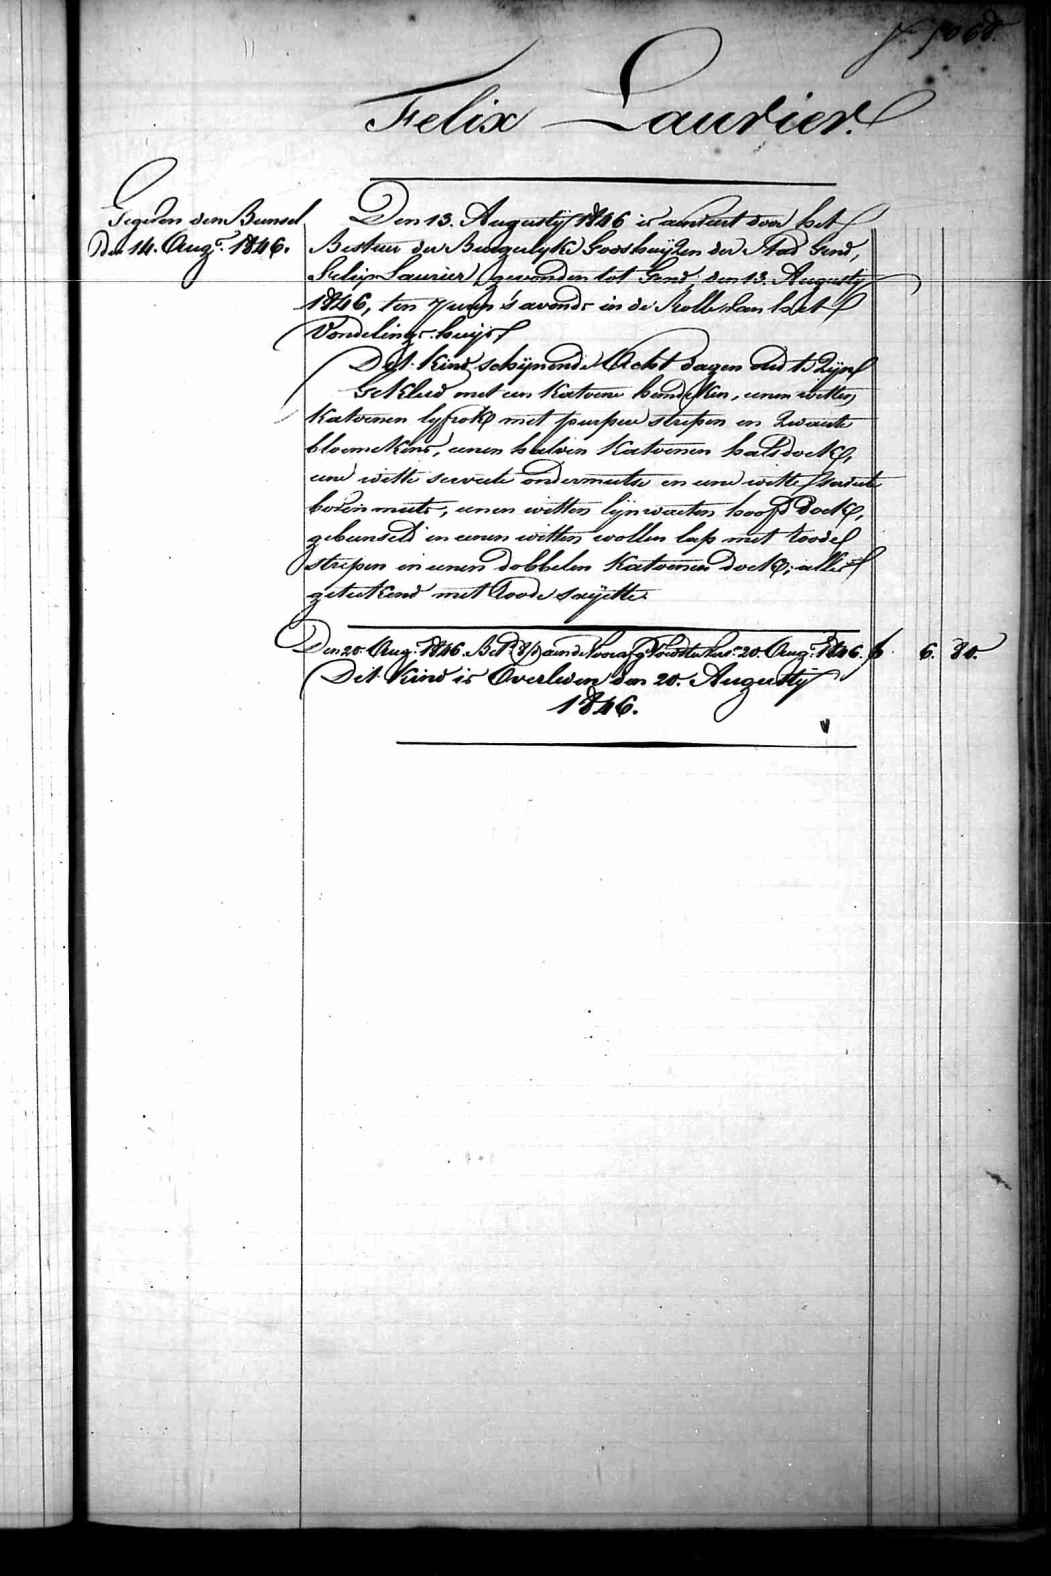 Felix Laurier.
Gegeven den Bunsel
Den 14. Aug.t 1846.
Den 13. Augusty 1846 is aenveirt door het
Bestuer der Burgerlyke Godshuijzen der Stad Gend,
Felix Laurier, gevonden tot Gend, den 13. Augusty
1846, ten 7 uren 's avonds in de Rolle van het
Vondelings-huijs.
Dit kind schijnende Acht dagen oud te Zijn
Gekleed met een Katoene hemdeken, eenen witten
Katoenen lyfrok met purpere strepen en Zwarte
bloemekens, eenen halven Katoenen halsdoek,
eene witte serveete ondermutse en eene witte serveete
bovenmuts, eenen witten lijnwaeten hoofddoek,
gebunseld in eenen witten wollen lap met roode
strepen en eenen dobbelen Katoenen doek; alles
geteekend met Roode sayette.
Den 20 Aug.t 1846. Bet.d aende Voedster 20. Aug.t 1846. f 6. 80.
Dit Kind is Overleden den 20. Augusty
1846.